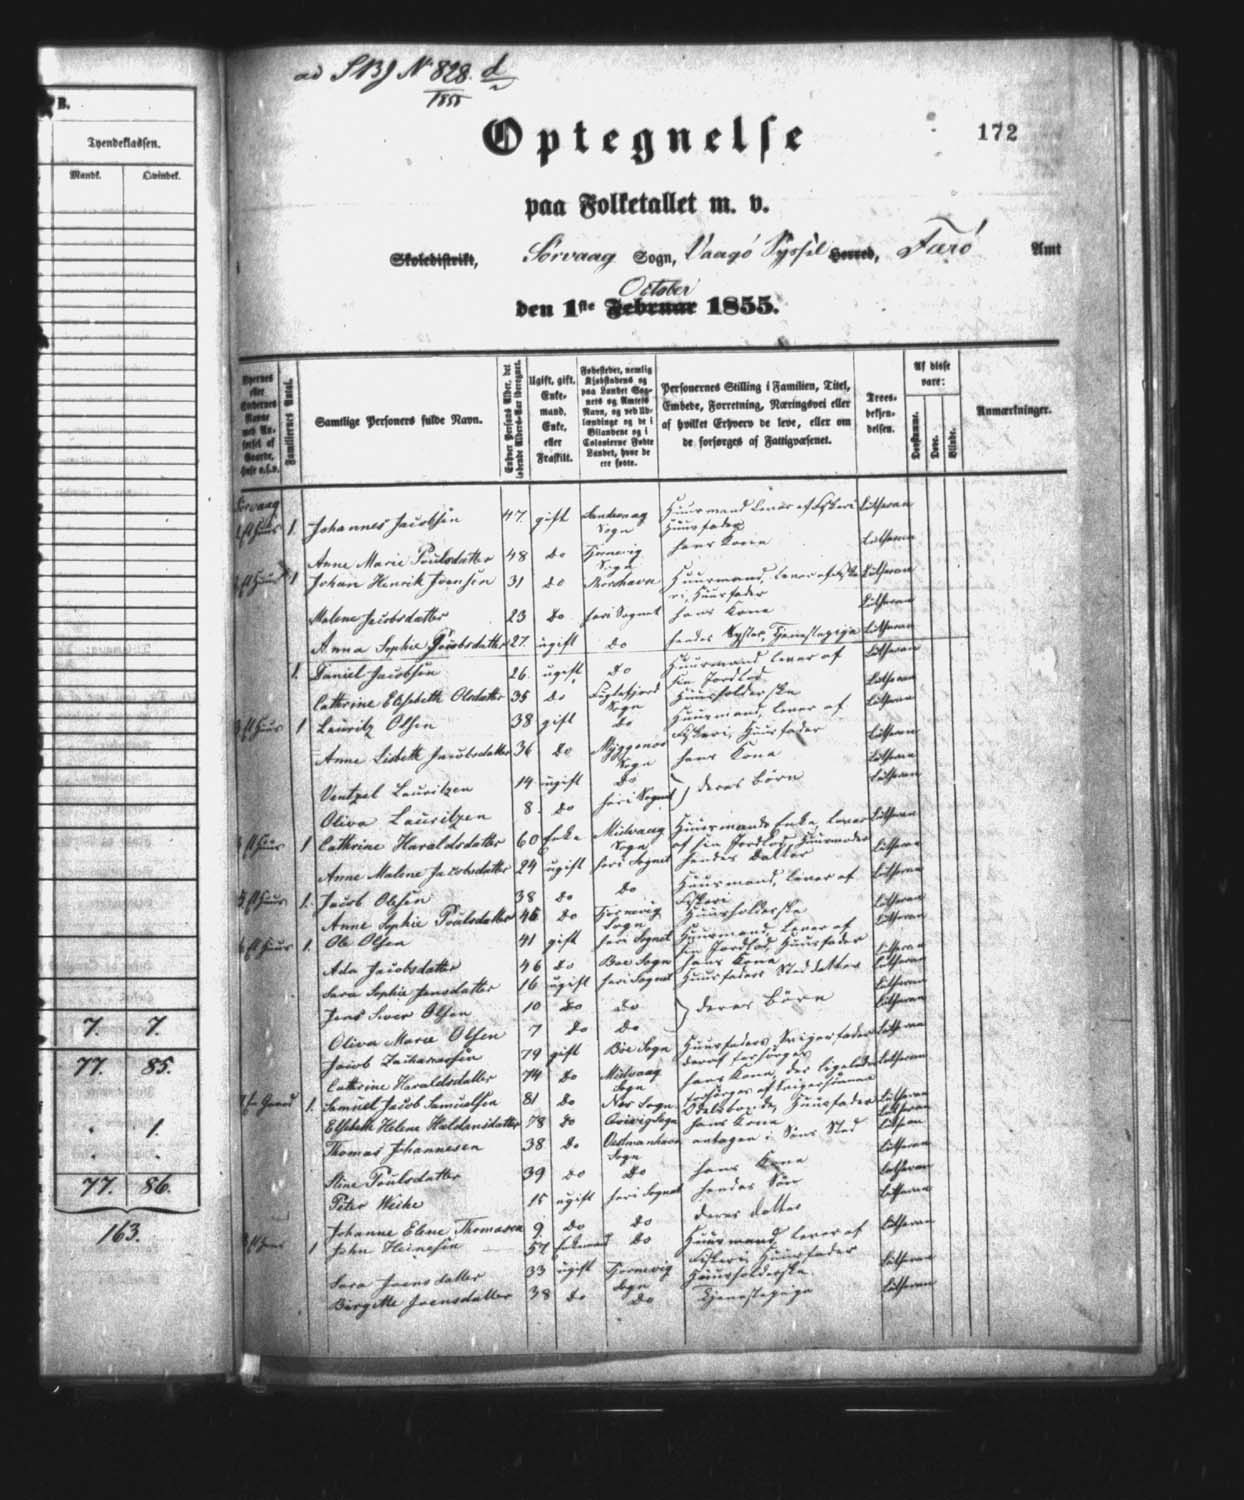 B.
Tyendeklassen.
Mandk. Qvindek.
7. 7.
77. 85.
. 1.
. .
77. 86.
163.
ad No 828
1855
Optegnelse
172
paa Folketallet m. v.
Skoledistrikt, Sørvaag Sogn, Vaagø Syssel Herred, Færø Amt
October
den 1ste Februar 1855.
Familiernes Antal.
Samtlige Personers fulde Navn.
Ugift, gift, Enkemand, Enke, eller Fraskilt.
Fødestedet, nemlig Kjøbstadens og paa Landet Sognets og Amtets Navn, og ved Udlændinge og de i Bilandene og i Colonierne Fødte Landet, hvor de ere fødte.
Personernes Stilling i Familien, Titel, Embede, Forretning, Næringsvei eller af hvilket Erhverv de leve, eller om de forsørges af Fattigvæsenet.
Troesbekjendelsen.
Af disse vare:
Døvstumme. Døve. Blinde.
Anmærkninger.
Sørvaag
1 Johannes Jacobsen 47 gift Sandevaag Sogn Lutheran
Anne Marie Poulsdatter 48 do Tjørnevig Sogn hans Kone Lutheran
1 Johan Henrik Joensen 31 do Thorshavn Lutheran
Malene Jacobsdatter 23 do her i Sognet hans Kone Lutheran
Anna Sophie Jacobsdatter 27 ugift do hendes Syster, Tjenestepige Lutheran
1. Daniel Jacobsen 26 ugift do Huusmand lever af sin Jordlod Lutheran
Cathrine Elsebeth Olsdatter 35 do Fuglefjord Sogn Huusholderske Lutheran
1 Lauritz Olsen 38 gift do Huusmand, lever af Fiskeri, Huusfader Lutheran
Anne Lisbeth Jacobsdatter 36 do Myggenæs Sogn hans Kone Lutheran
Ventzel Lauritzen 14 ugift do } deres Børn Lutheran
Oliva Lauritzen 8 do her i Sognet Lutheran
1 Cathrine Haraldsdatter 60 Enke Midvaag Sogn Huusmands Enke, lever af sin Jordlod, Huusmoder Lutheran
Anne Malene Jacobsdatter 24 ugift her i Sognet hendes Datter Lutheran
1. Jacob Olsen 38 do do Huusmand, lever af Fiskeri Lutheran
Anne Sophie Poulsdatter 46 do Tjørnevig Sogn Huusholderske Lutheran
1. Ole Olsen 41 gift her i Sognet Huusmand, lever af sin Jordlod, Huusfader Lutheran
Ada Jacobsdatter 46 do Bøe Sogn hans Kone Lutheran
Sara Sophie Jensdatter 16 ugift her i Sognet Huusfaders Steddatter Lutheran
Jens Siver Olsen 10 do do } deres Børn Lutheran
Oliva Marie Olsen 7 do do Lutheran
Jacob Zachariasen 79 gift Bøe Sogn Huusfaders Svigerfader Lutheran
Cathrine Haraldsdatter 74 do Midvaag Sogn hans Kone Lutheran
1. Samuel Jacob Samuelsen 81 do Nes Sogn Odelsbonde, Huusfader Lutheran
Elsebeth Helene Haldansdatter 78 do Qvivig Sogn hans Kone Lutheran
Thomas Johannesen 38 do Vestmanhavn Sogn antagen i Søns Sted Lutheran
Stine Poulsdatter 39 do do hans Kone Lutheran
Peter Weihe 15 ugift her i Sognet hendes Søn Lutheran
Johanne Elene Thomasen 9 do do deres Datter Lutheran
1 John Heinesen 57 Enkemand do Huusmand lever af Fiskeri, Huusfader Lutheran
Sara Joensdatter 33 ugift Tjørnevig Sogn Huusholderske Lutheran
Birgitte Joensdatter 38 do do Tjenestepige Lutheran